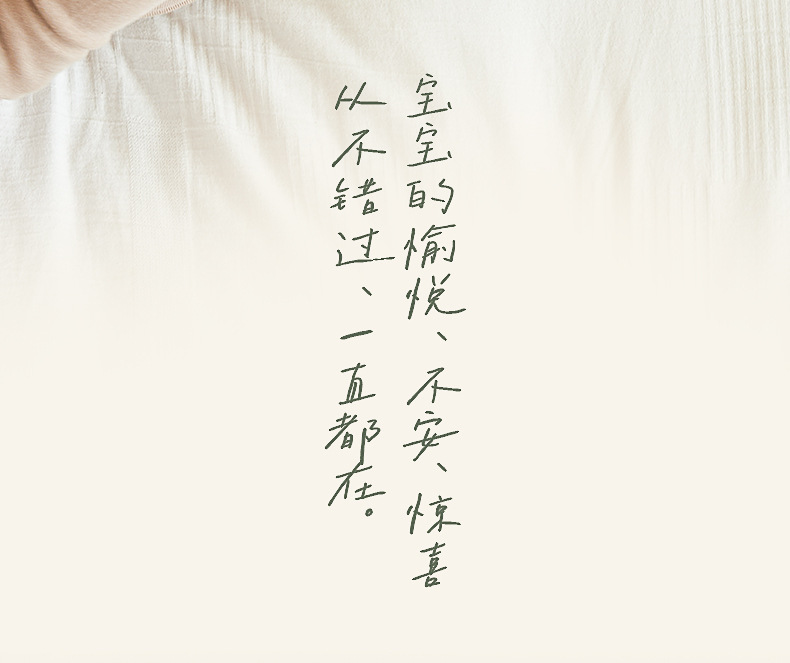 宝宝的愉悦、不安、惊喜
从不错过、一直都在。